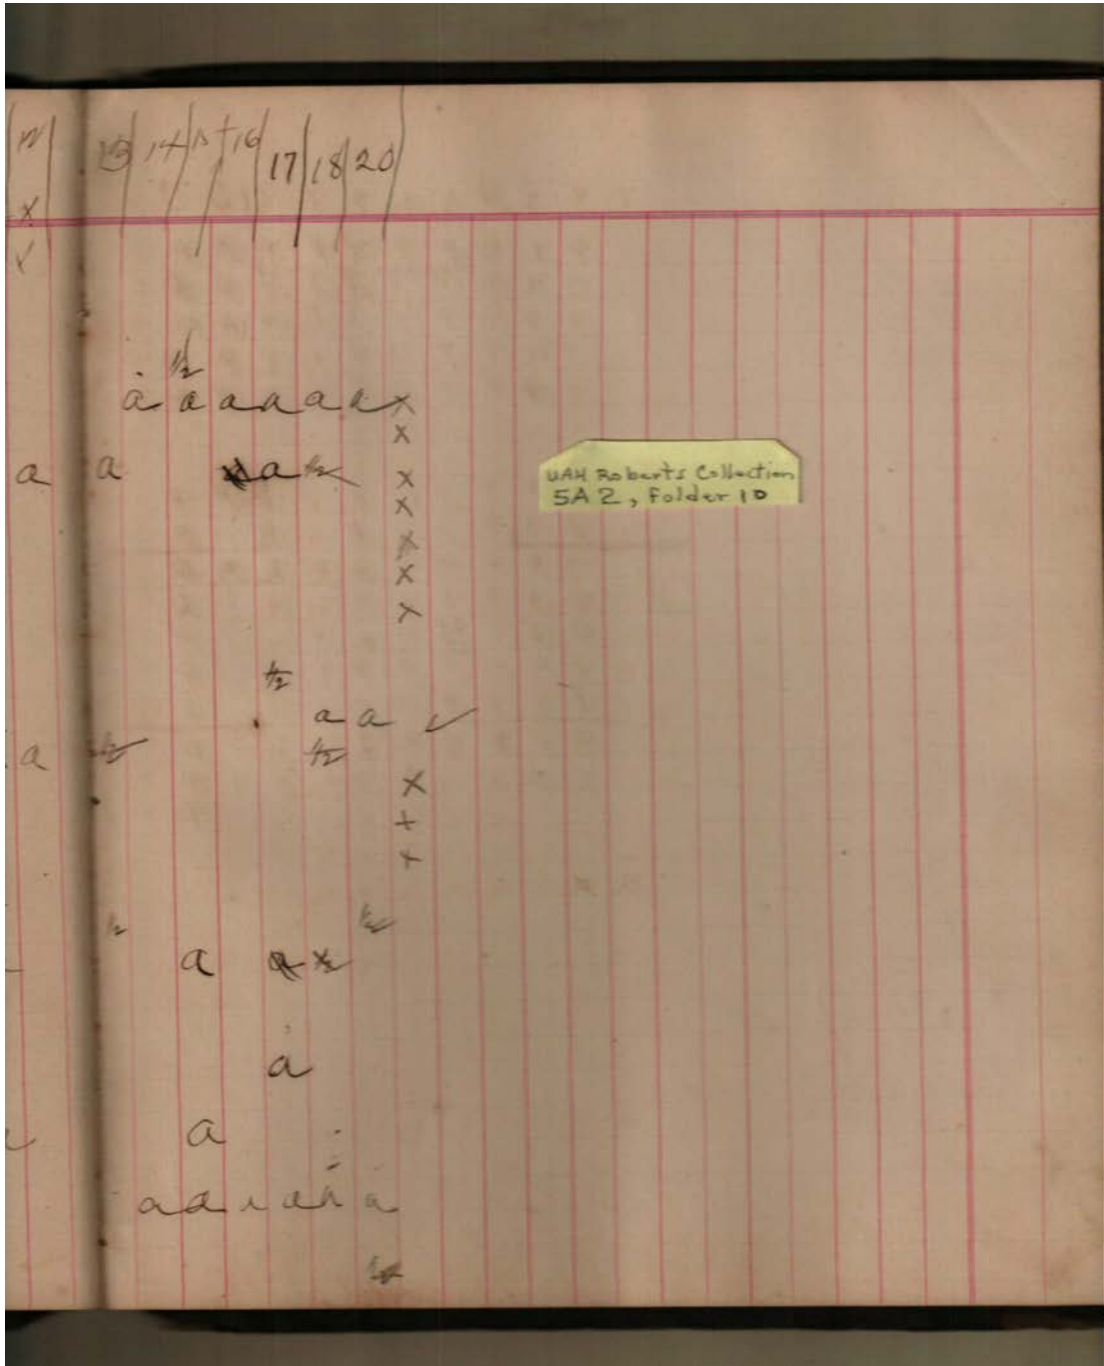 13 14 15 16 17 18 20
x
✓
1/2
a a a a a a x
x
a a a 1/2 x
x
x
x
x
1/2
a a ✓
a 1/2 1/2
x
x
x
1/2 1/2
a
a
a
a a a
UAH Roberts Collection
5A2, Folder 10